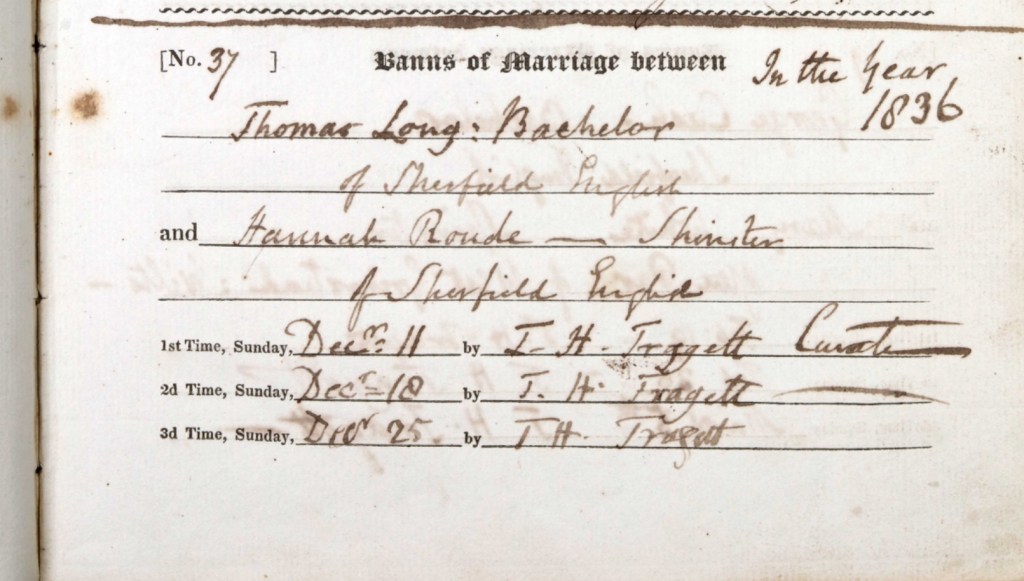 [No. 37 ] Banns of Marriage between In the Year
1836
Thomas Long: Bachelor
of Sherfield English
and Hannah Roude — Spinster
of Sherfield English
1st Time, Sunday, Decr. 11 by T. H. Traggett Curate
2d Time, Sunday, Decr. 18 by T. H. Tragett
3d Time, Sunday, Decr 25. by T H. Tragett